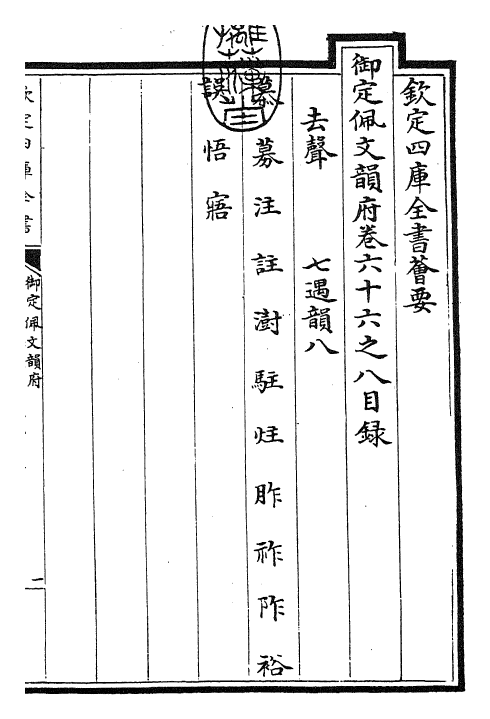 欽定四庫全書薈要
御定佩文韻府卷六十六之八目録
去聲　七遇韻八
慕募注註澍駐炷胙祚阼裕
誤悟寤
欽定四庫全書
御定佩文韻府
一